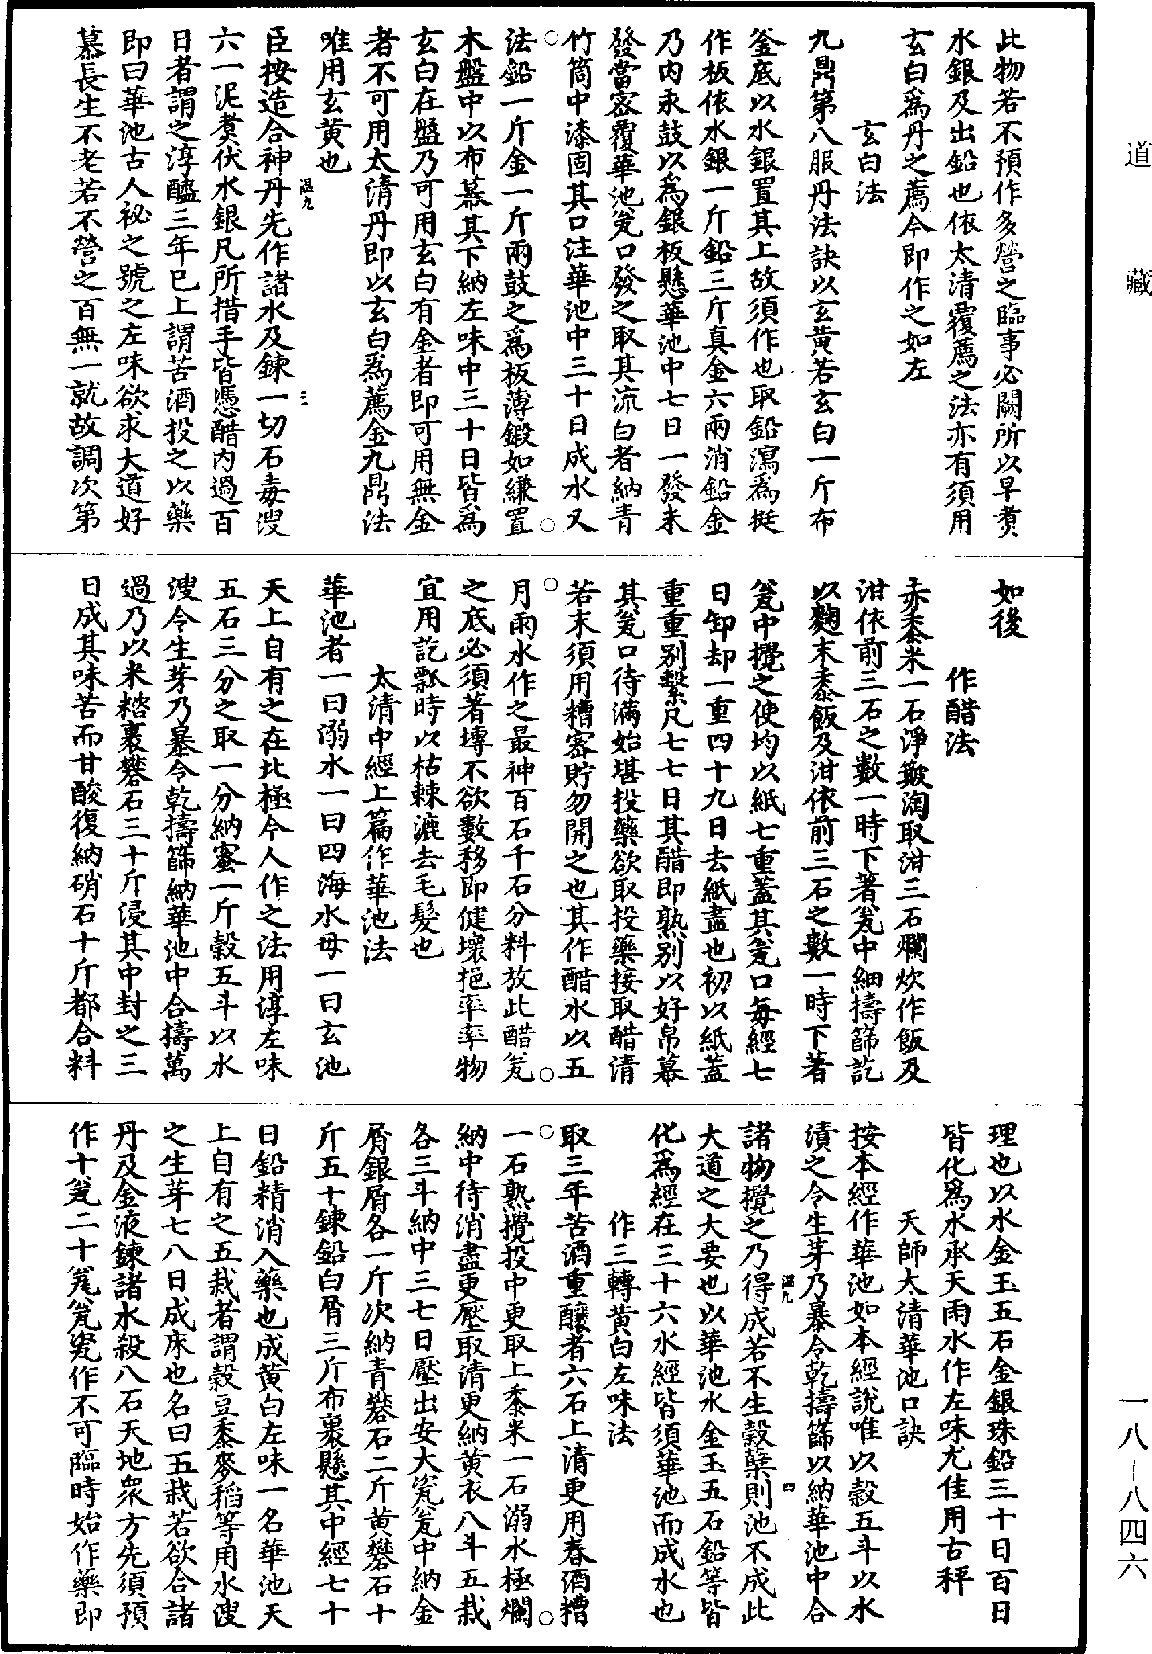 道藏
此物若不預作多營之臨事必闕所以早煑
水銀及出鉛也依太清覆薦之法亦有須用
玄白為丹之薦今即作之如左
玄白法
九鼎第八服丹法訣以玄黃若玄白一斤布
釜底以水銀置其上故須作也取鉛瀉為挺
作板依水銀一斤鉛三斤真金六兩消鉛金
乃內汞鼓以為銀板懸華池中七日一發未
發當密覆華池瓮口發之取其流白者納青
竹筒中漆固其口注華池中三十日成水又
法鉛一斤金一斤兩鼓之為板薄鍛如縑置
木盤中以布幕其下納左味中三十日皆為
玄白在盤乃可用玄白有金者即可用無金
者不可用太清丹即以玄白為薦金九鼎法
唯用玄黃也
溫九
三
臣按造合神丹先作諸水及鍊一切石毒溲
六一泥煑伏水銀凡所措手皆憑醋內過百
日者謂之淳醯三年已上謂苦酒投之以藥
即曰華池古人祕之號之左味欲求大道好
慕長生不老若不營之百無一就故調次第
如後
作醋法
赤黍米一石淨簸淘取泔三石爛炊作飯及
泔依前三石之數一時下著瓮中細擣篩訖
以麴末黍飯及泔依前三石之數一時下著
瓮中攪之使均以紙七重蓋其瓮口每經七
日卸却一重四十九日去紙盡也初以紙蓋
重重別繫凡七七日其醋即熟別以好帛幕
其瓮口待滿始堪投藥欲取投藥接取醋清
若未須用糟密貯勿開之也其作醋水以五
月雨水作之最神百石千石分料放此醋瓮
之底必須著塼不欲數移即健壞挹率率物
宜用訖瓢時以枯棘漉去毛髮也
太清中經上篇作華池法
華池者一曰溺水一曰四海水母一曰玄池
天上自有之在北極今人作之法用淳左味
五石三分之取一分納蜜一斤穀五斗以水
溲令生芽乃暴令乾擣篩納華池中合擣萬
過乃以米糝裹礬石三十斤浸其中封之三
日成其味苦而甘酸復納硝石十斤都合料
理也以水金玉五石金銀珠鉛三十日百日
皆化為水承天雨水作左味尤佳用古秤
天師太清華池口訣
按本經作華池如本經說唯以穀五斗以水
漬之令生芽乃暴令乾擣篩以納華池中合
諸物攪之乃得成若不生穀糵則池不成此
溫九
四
大道之大要也以華池水金玉五石鉛等皆
化為經在三十六水經皆須華池而成水也
作三轉黃白左味法
取三年苦酒重釀者六石上清更用春酒糟
一石熟攪投中更取上黍米一石溺水極爛
納中待消盡更壓取清更納黃衣八斗五栽
各三斗納中三七日壓出安大瓮瓮中納金
屑銀屑各一斤次納青礬石二斤黃礬石十
斤五十鍊鉛白屑三斤布裹懸其中經七十
日鉛精消入藥也成黃白左味一名華池天
上自有之五栽者謂穀豆黍麥稻等用水溲
之生芽七八日成床也名曰五栽若欲合諸
丹及金液鍊諸水殺八石天地衆方先須預
作十瓮二十瓮瓮瓷作不可臨時始作藥即
一八-八四六